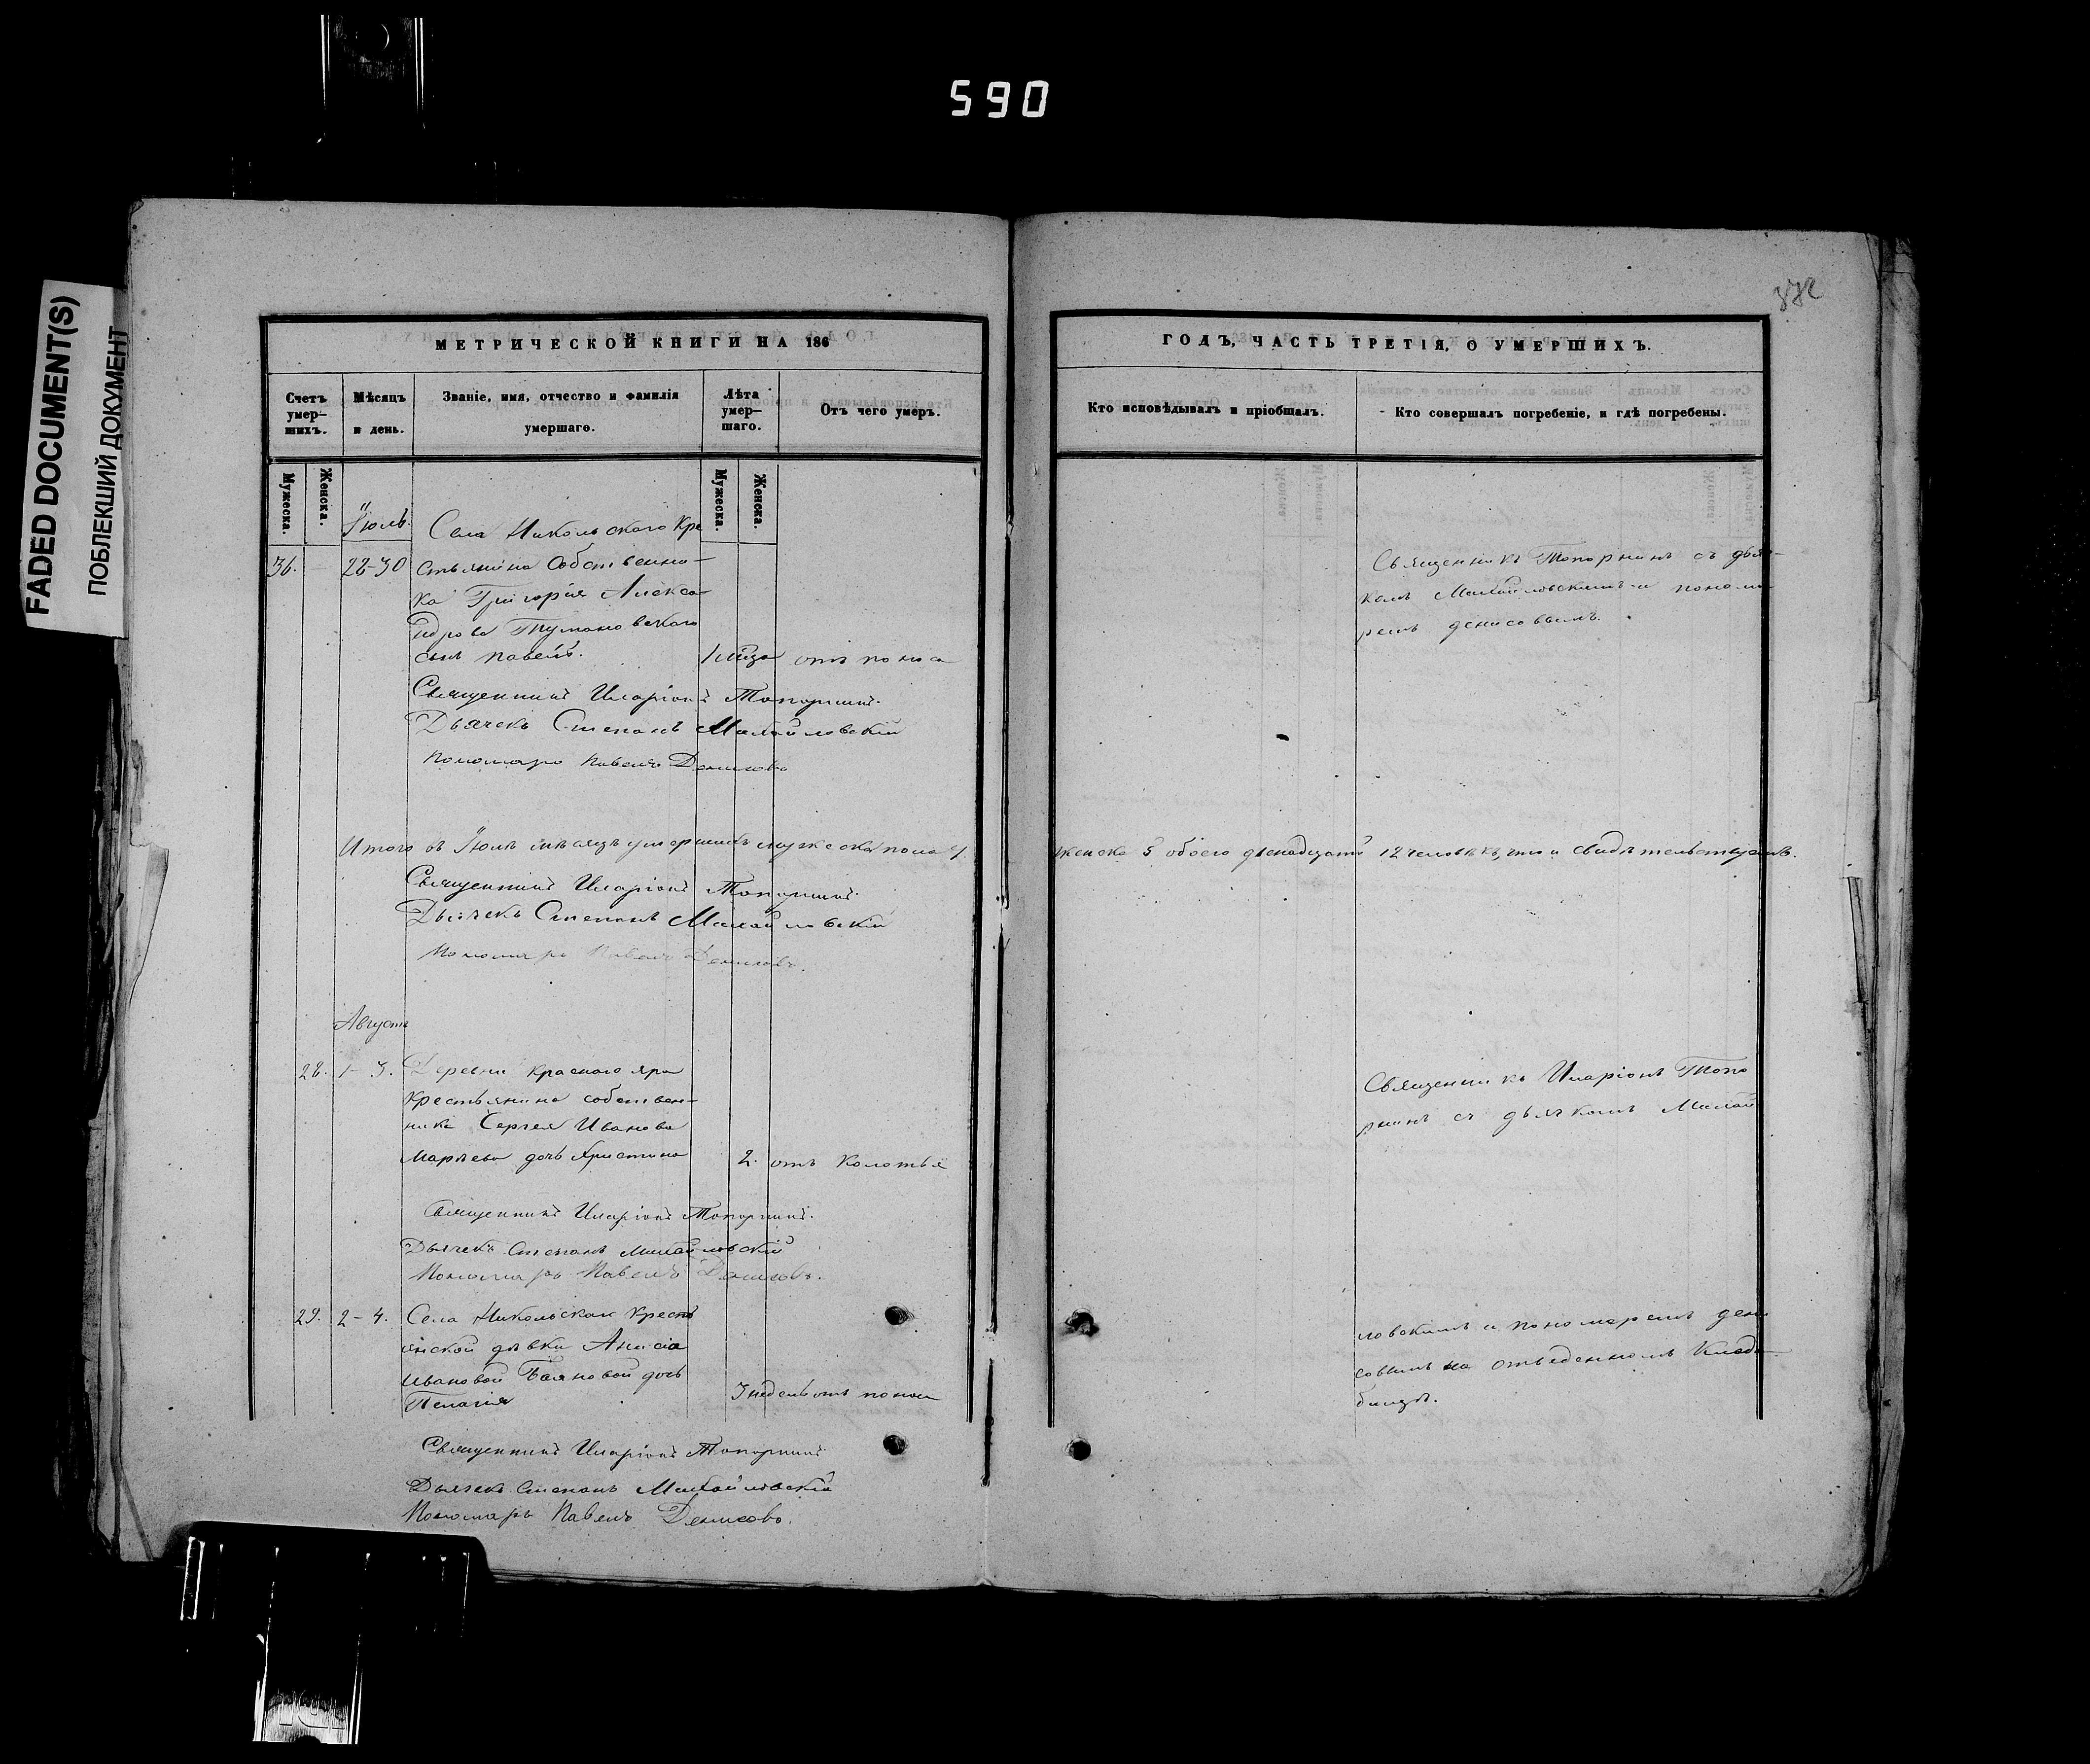 590
FADED DOCUMENT(S)
ПОБЛЕКШИЙ ДОКУМЕНТ
МЕТРИЧЕСКОЙ КНИГИ НА 186
Счетъ умер-шихъ.
Мѣсяцъ и день.
Званіе, имя, отчество и фамилія умершаго.
Лѣта умер-шаго.
Отъ чего умеръ.
Мужеска.
Женска.
Мужеска.
Женска.
Іюль.
Села Никольскаго Кре
36. 28-30 стьянина Собственни-
ка Григорія Алекса-
ндрова Тумановскаго
сынъ Павелъ.
отъ поноса
Священникъ Иларіонъ Топорнинъ.
Дьячекъ Степанъ Михайловскій
Пономарь Павелъ Денисовъ
Итого въ Іюлѣ мѣсяцѣ умершихъ мужеска пола
Священникъ Иларіонъ Топорнинъ.
Дьячекъ Степанъ Михайловскій
Пономарь Павелъ Денисовъ.
Августъ
28. 1-3. Деревни Краснаго яра
крестьянина собствен-
ника Сергея Иванова
дочь Христина 2. отъ колотья
Священникъ Иларіонъ Топорнинъ.
Дьячекъ Степанъ Михайловскій
Пономарь Павелъ Денисовъ.
29. 2-4. Села Никольскаго Кресть
янской дѣвки Анисіи
Ивановой Баяновой дочь
Пелагія 3 недель отъ поноса
Священникъ Иларіонъ Топорнинъ
Дьячекъ Степанъ Михайловскій
Пономарь Павелъ Денисовъ.
372
ГОДЪ, ЧАСТЬ ТРЕТІЯ, О УМЕРШИХЪ.
Кто исповѣдывалъ и пріобщалъ.
Кто совершалъ погребеніе, и гдѣ погребены.
Священникъ Топорнинъ съ дьяч-
комъ Михайловскимъ и понома
ремъ Денисовымъ.
женска 3 обоего двенадцать 12 человѣкъ, что и свидѣтельствуемъ.
Священникъ Иларіонъ Топо
рнинъ съ дьячкомъ Михай
ловскимъ и пономаремъ Дени
совымъ на отведенномъ Кладъ
бищѣ.